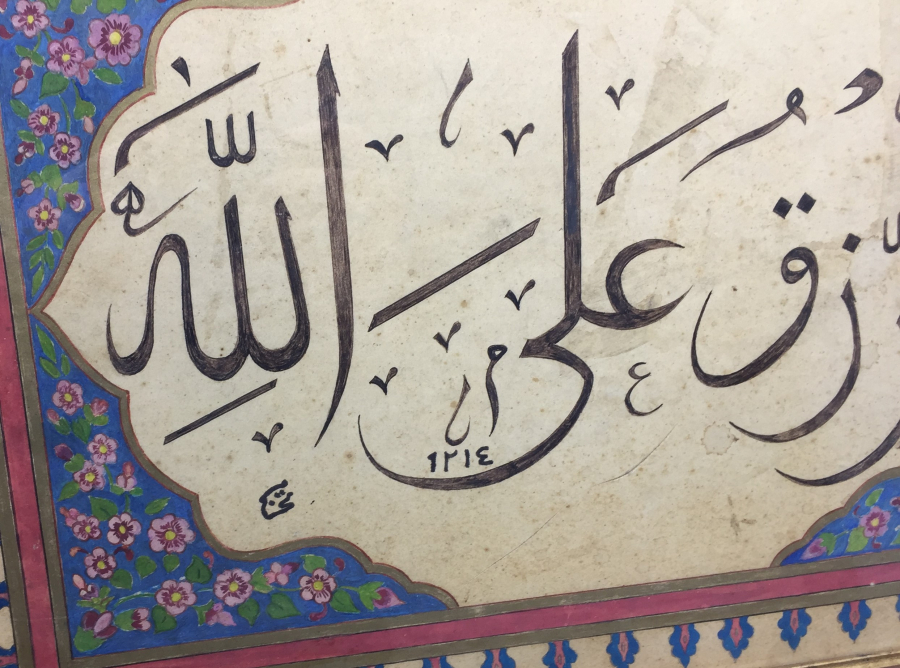 رزق على الله
١٢١٤